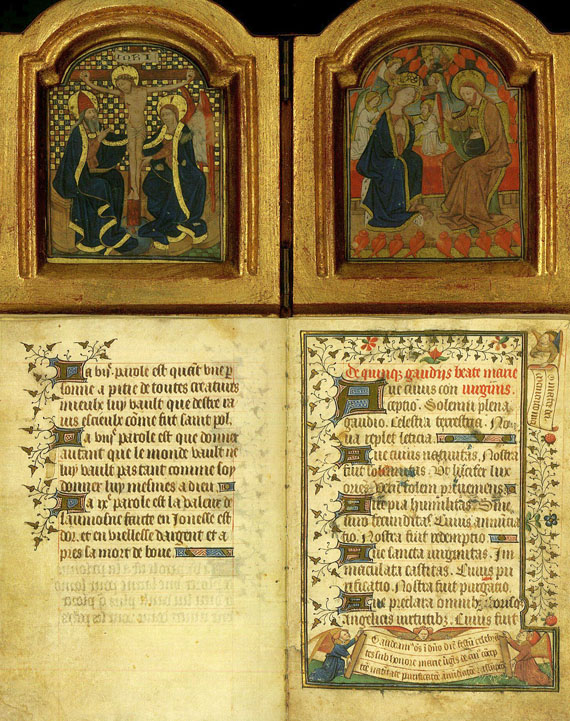 INRI
La viij parole est quant vne per
sonne a pitie de toutes creatures
mieulx luy vault que destre ra
uis es cieulx côme fut saint pol.
La viijᵉ parole est que donner
autant que le monde vault ne
luy vault pas tant comme soy
donner luy mesmes a dieu
La ixᵉ parole est la valeur de
laumosne faicte en Jonesse est
dor. et en viellesse dargent et a
pres la mort de boue
De quinqȝ gaudijs beate marie
Aue cuius con virginis.
ceptio. Solenni plena
gaudio. Celestia terrestria. No
ua replet leticia.
Aue cuius natiuitas. Nostra
fuit solennitas. Vt lucifer lux
oriens. Verū solem preueniens.
Aue pia humilitas. Sine
viro fecunditas. Cuius annūcia
tio. Nostra fuit redemptio
Aue sancta virginitas. Im
maculata castitas. Cuius pu
rificatio. Nostra fuit purgatio.
Aue preclara omnibȝ
angelicis virtutibȝ. Cuius fuit
Gaudeam⁹ oēs ī dūo diē festū celebrā
tes sub honore marie